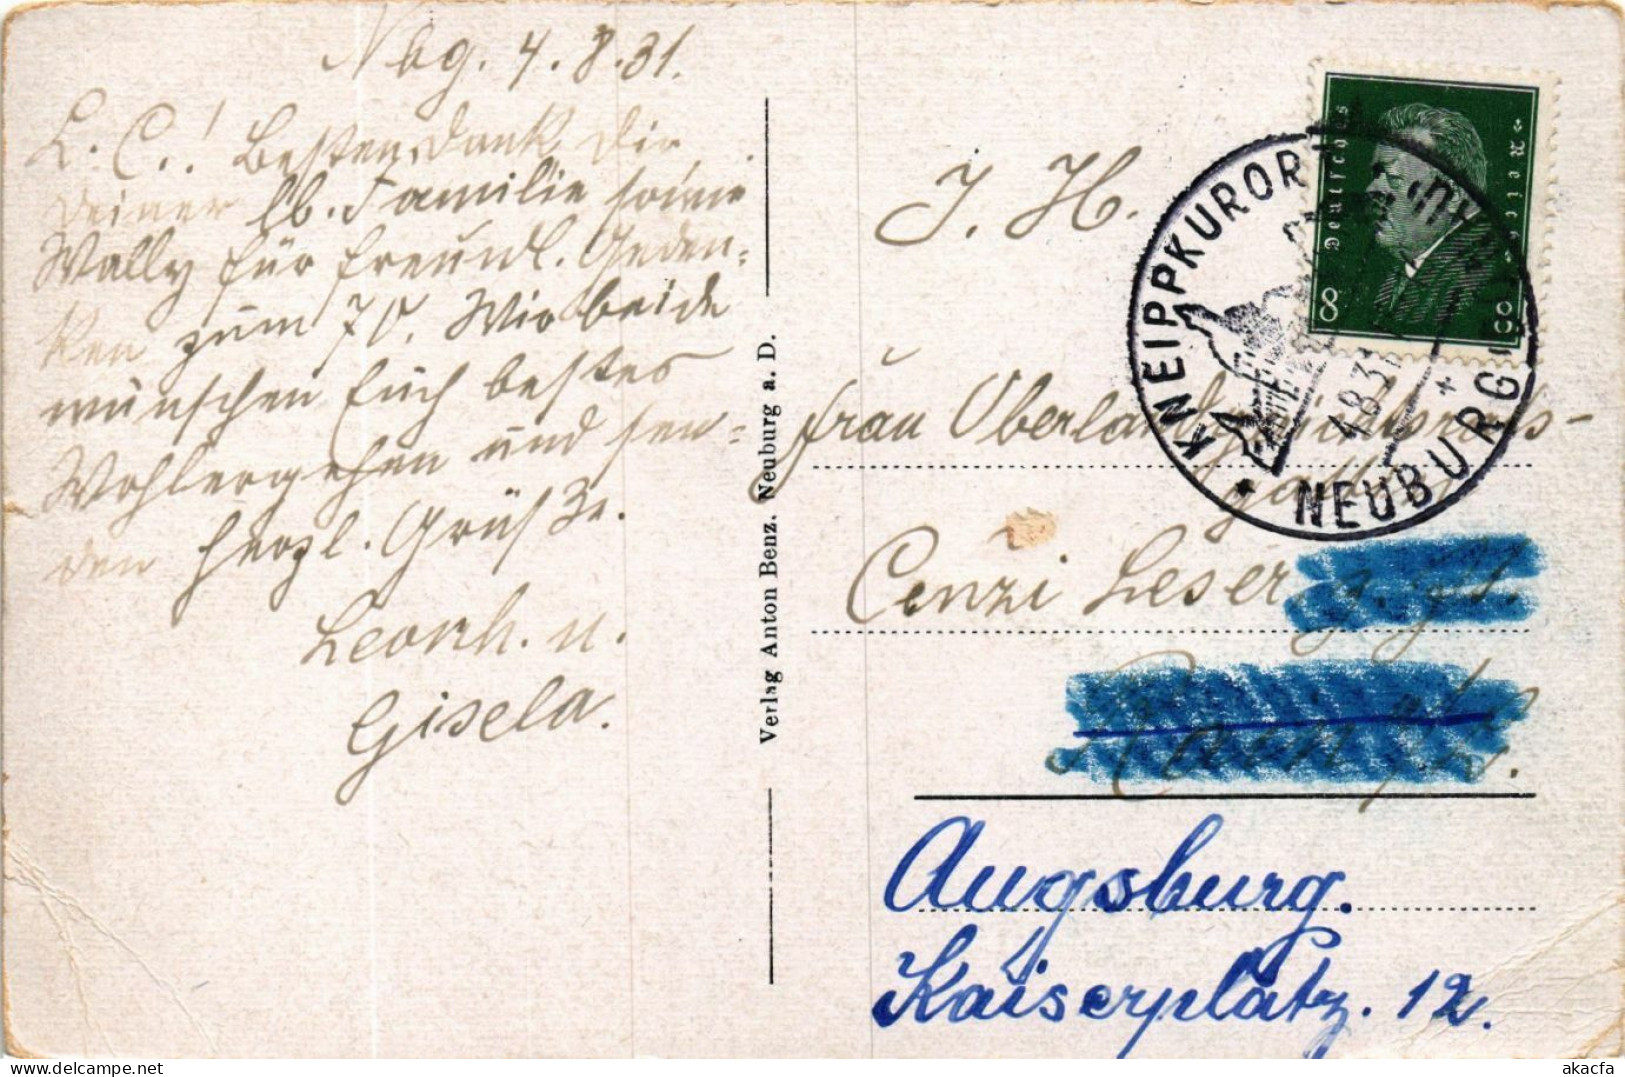 Nbg. 4.8.31.
L. C.! Besten Dank Dir
Deiner lb. Familie sowie
Wally für freundl. Geden-
ken zum 70. Wir beide
wünschen Euch bestes
Wohlergehen und sen-
den herzl. Grüße.
Leonh. u.
Gisela.
Verlag Anton Benz. Neuburg a. D.
Deutsches Reich
8 8
KNEIPPKURORT
4.8.31
NEUBURG
J. H.
Frau Oberlandgerichtsrats-
gattin
Cenzi Leser
Rain a/L.
Augsburg.
Kaiserplatz. 12.
akacfa